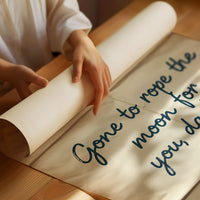 Gone to rope the
moon for
you, da